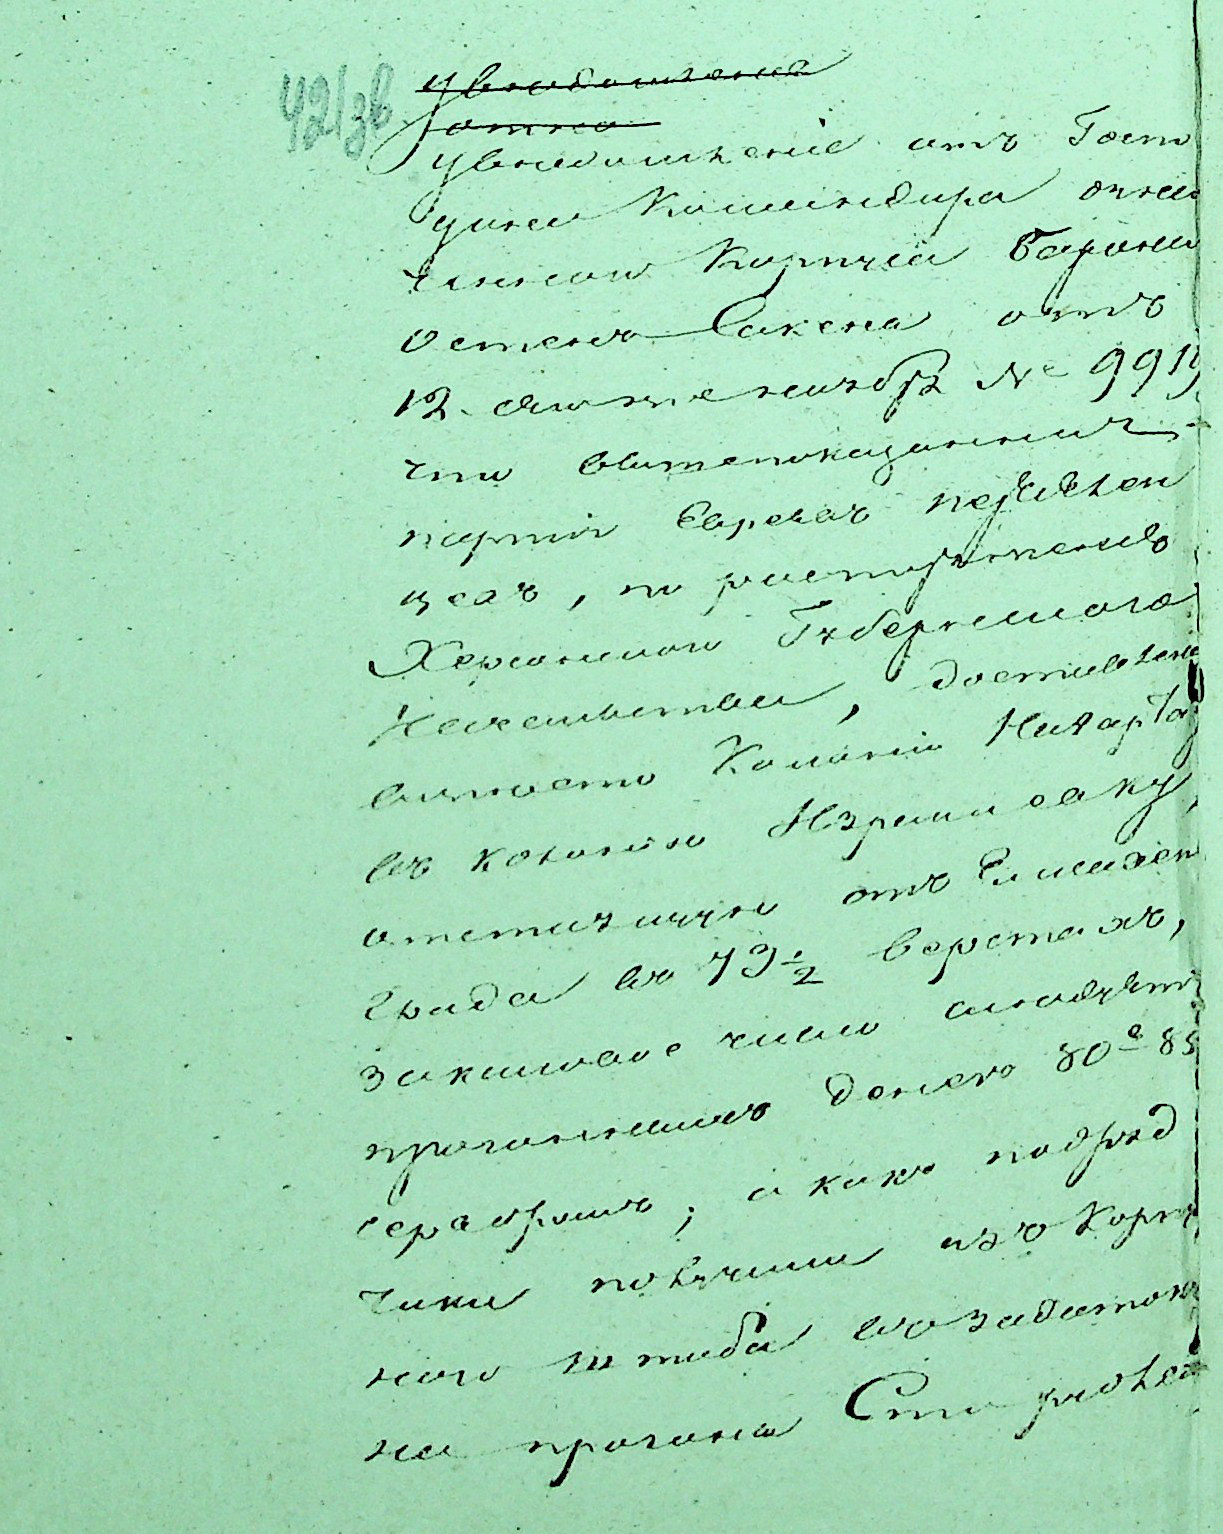 42/зв
увѣдомленіе
отно
увѣдомленіе отъ Госпо
дина Командира отдѣ
Корпуса Барона
Остенъ-Сакена отъ
12. сего сентября № 991
что вышепоказанныхъ
партія Евреевъ переселен
цевъ, по распоряженію
Херсонскаго Губернскаго
Начальства, доставлены
вмѣсто Колоніи
въ колонію Израилевку,
отстоящую отъ Елисавет
града въ 73 1/2 верстахъ,
за каковое число слѣдуетъ
прогонныхъ денегъ 80 е 85
серебромъ; а какъ подряд
чики получили изъ Корпу
наго штаба въ задатокъ
на прогоны Сто рублей